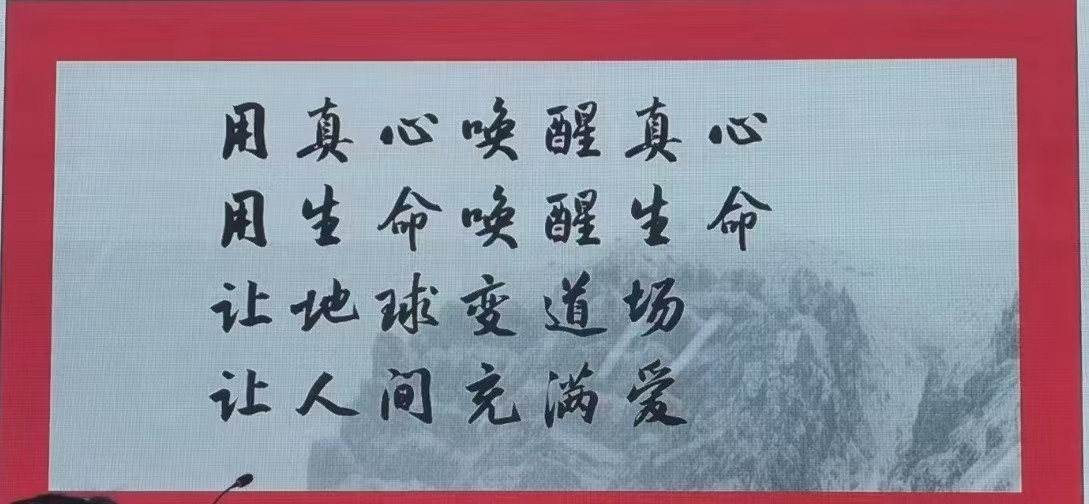 用真心唤醒真心
用生命唤醒生命
让地球变道场
让人间充满爱